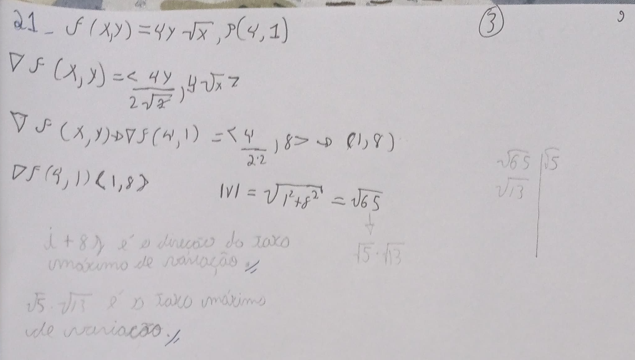 21- f(x,y)=4y√x, P(4,1)
③
∇f(x,y)=<4y/2√x, 4√x>
∇f(x,y)→∇f(4,1)=<4/2·2, 8>→(1,8)
√65 | √5
√13
∇f(4,1)<1,8>
|V|=√1²+8²=√65
↓
√5·√13
i+8j é a direção da taxa
máxima de variação //
√5·√13 é a taxa máxima
de variação //